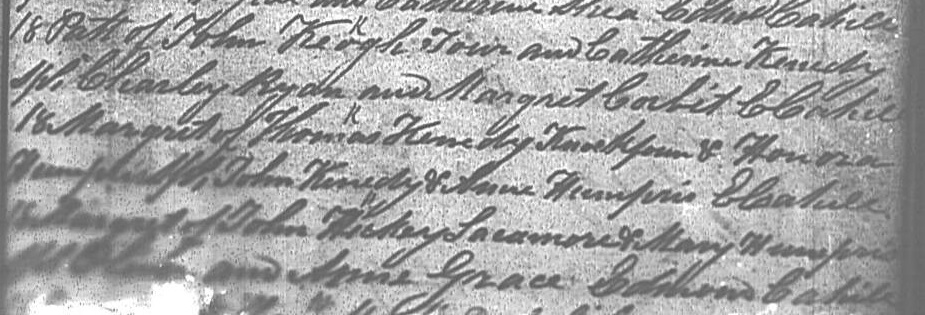 and Catherine Shea Edmd Cahill
18 Patt of John Keogh Town and Catherine Kenedy
Sps Charley Ryan and Margret Corbit E Cahill
18 Margret of Thomas Kenedy & Honora
Sps John Kenedy & Anne Humpris E Cahill
18 Margret of John Hickey & Mary Humpris
and Anne Grace Edmund Cahill